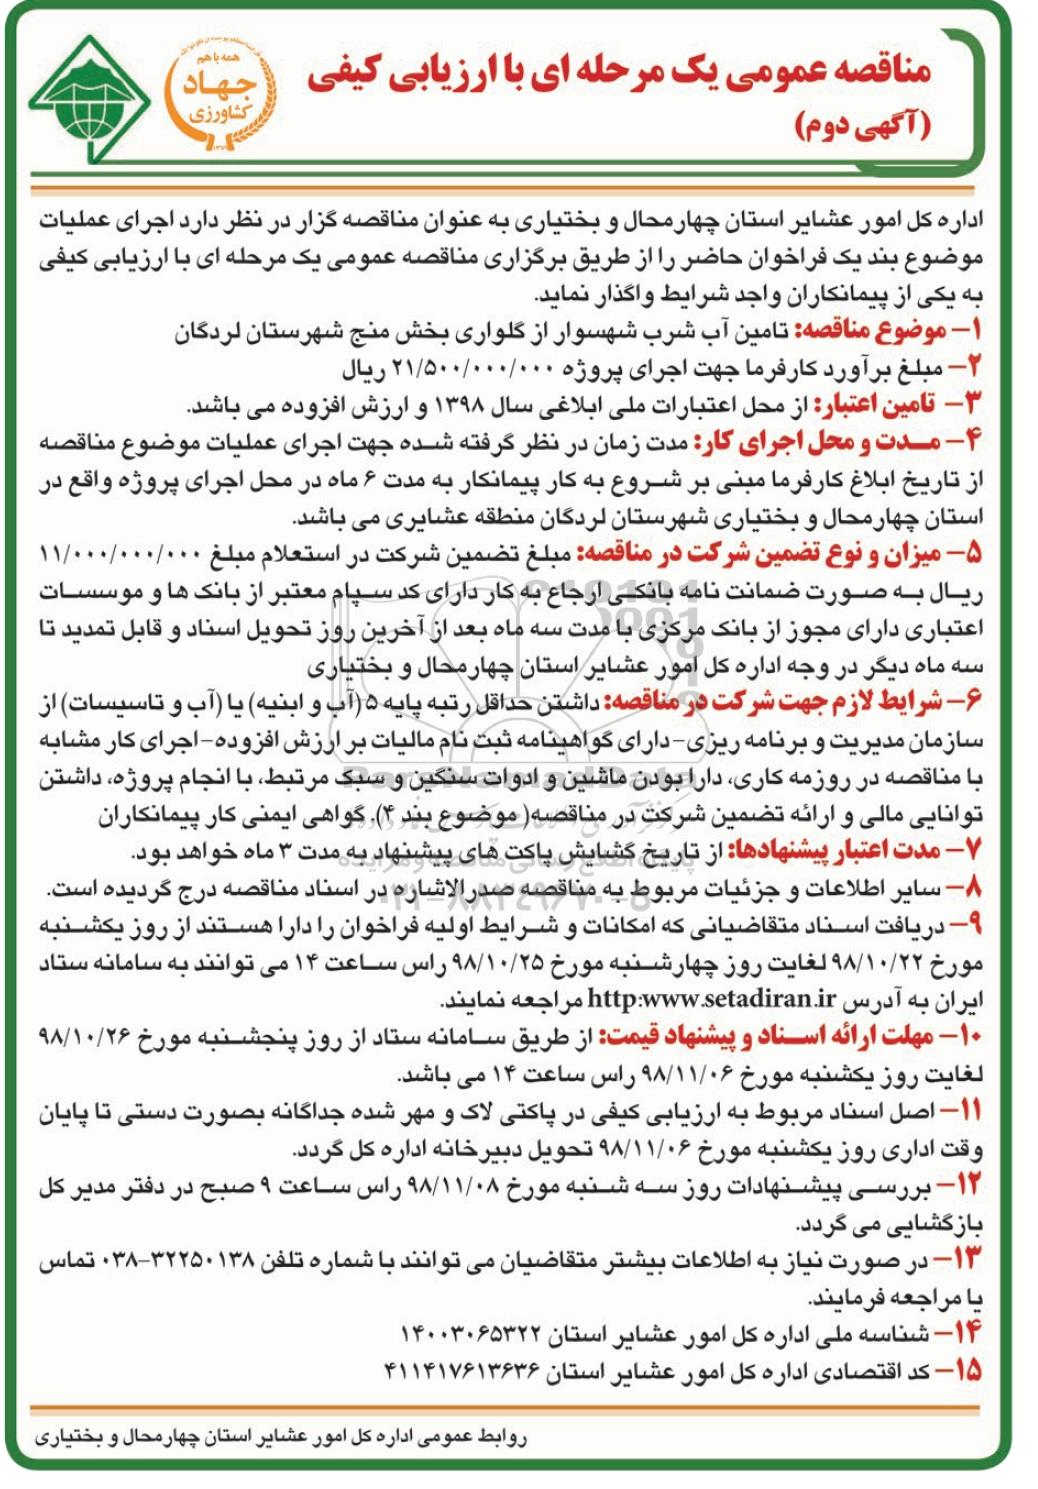 مناقصه عمومی یک مرحله ای با ارزیابی کیفی
(آگهی دوم)
همه با هم
جهاد
کشاورزی
اداره کل امور عشایر استان چهارمحال و بختیاری به عنوان مناقصه گزار در نظر دارد اجرای عملیات
موضوع بند یک فراخوان حاضر را از طریق برگزاری مناقصه عمومی یک مرحله ای با ارزیابی کیفی
به یکی از پیمانکاران واجد شرایط واگذار نماید.
۱- موضوع مناقصه: تامین آب شرب شهسوار از گلواری بخش منج شهرستان لردگان
۲- مبلغ برآورد کارفرما جهت اجرای پروژه ۲۱/۵۰۰/۰۰۰/۰۰۰ ریال
۳- تامین اعتبار: از محل اعتبارات ملی ابلاغی سال ۱۳۹۸ و ارزش افزوده می باشد.
۴- مدت و محل اجرای کار: مدت زمان در نظر گرفته شده جهت اجرای عملیات موضوع مناقصه
از تاریخ ابلاغ کارفرما مبنی بر شروع به کار پیمانکار به مدت ۶ ماه در محل اجرای پروژه واقع در
استان چهارمحال و بختیاری شهرستان لردگان منطقه عشایری می باشد.
۵- میزان و نوع تضمین شرکت در مناقصه: مبلغ تضمین شرکت در استعلام مبلغ ۱۱/۰۰۰/۰۰۰/۰۰۰
ریال به صورت ضمانت نامه بانکی ارجاع به کار دارای کد سپام معتبر از بانک ها و موسسات
اعتباری دارای مجوز از بانک مرکزی با مدت سه ماه بعد از آخرین روز تحویل اسناد و قابل تمدید تا
سه ماه دیگر در وجه اداره کل امور عشایر استان چهارمحال و بختیاری
۶- شرایط لازم جهت شرکت در مناقصه: داشتن حداقل رتبه پایه ۵ (آب و ابنیه) یا (آب و تاسیسات) از
سازمان مدیریت و برنامه ریزی-دارای گواهینامه ثبت نام مالیات بر ارزش افزوده-اجرای کار مشابه
با مناقصه در روزمه کاری، دارا بودن ماشین و ادوات سنگین و سبک مرتبط، با انجام پروژه، داشتن
توانایی مالی و ارائه تضمین شرکت در مناقصه( موضوع بند ۴). گواهی ایمنی کار پیمانکاران
۷- مدت اعتبار پیشنهادها: از تاریخ گشایش پاکت های پیشنهاد به مدت ۳ ماه خواهد بود.
۸- سایر اطلاعات و جزئیات مربوط به مناقصه صدرالاشاره در اسناد مناقصه درج گردیده است.
۹- دریافت اسناد متقاضیانی که امکانات و شرایط اولیه فراخوان را دارا هستند از روز یکشنبه
مورخ ۹۸/۱۰/۲۲ لغایت روز چهارشنبه مورخ ۹۸/۱۰/۲۵ راس ساعت ۱۴ می توانند به سامانه ستاد
ایران به آدرس http:www.setadiran.ir مراجعه نمایند.
۱۰- مهلت ارائه اسناد و پیشنهاد قیمت: از طریق سامانه ستاد از روز پنجشنبه مورخ ۹۸/۱۰/۲۶
لغایت روز یکشنبه مورخ ۹۸/۱۱/۰۶ راس ساعت ۱۴ می باشد.
۱۱- اصل اسناد مربوط به ارزیابی کیفی در پاکتی لاک و مهر شده جداگانه بصورت دستی تا پایان
وقت اداری روز یکشنبه مورخ ۹۸/۱۱/۰۶ تحویل دبیرخانه اداره کل گردد.
۱۲- بررسی پیشنهادات روز سه شنبه مورخ ۹۸/۱۱/۰۸ راس ساعت ۹ صبح در دفتر مدیر کل
بازگشایی می گردد.
۱۳- در صورت نیاز به اطلاعات بیشتر متقاضیان می توانند با شماره تلفن ۳۲۲۵۰۱۳۸-۰۳۸ تماس
یا مراجعه فرمایند.
۱۴- شناسه ملی اداره کل امور عشایر استان ۱۴۰۰۳۰۶۵۳۲۲
۱۵- کد اقتصادی اداره کل امور عشایر استان ۴۱۱۴۱۷۶۱۳۶۳۶
روابط عمومی اداره کل امور عشایر استان چهارمحال و بختیاری
ParsNamadData
پایگاه اطلاع رسانی مناقصه و مزایده
۰۲۱-۸۸۳۴۹۶۷۰-۵